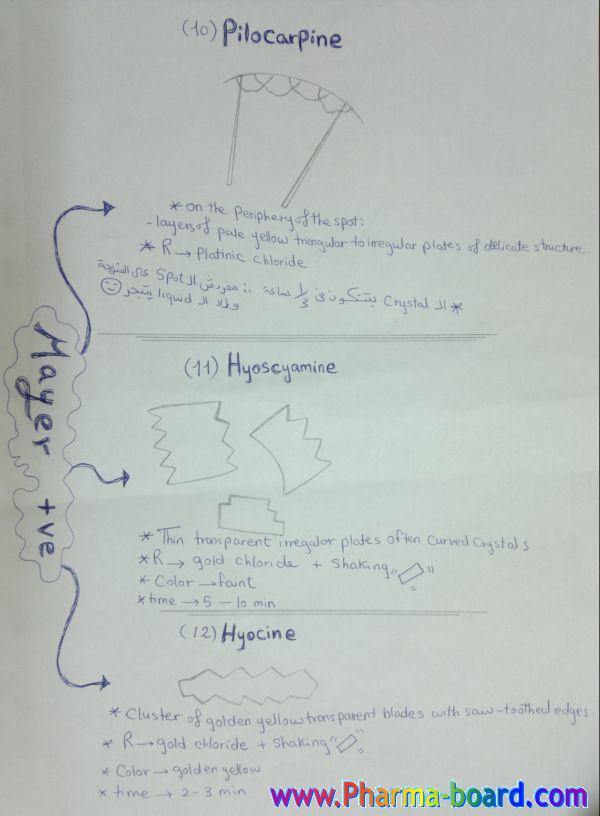 (10) Pilocarpine
* on the periphery of the spot:
- layers of pale yellow triangular to irregular plates of delicate structure.
* R → Platinic chloride
* الـ Crystal بتتكون فى 1/3 ساعة ∴ مفردش الـ Spot على
ولا الـ liquid يتبخر
Mayer +ve
(11) Hyoscyamine
* Thin transparent irregular plates often curved crystals
* R → gold chloride + shaking " "
* Color → faint
* time → 5 – 10 min
(12) Hyocine
* Cluster of golden yellow transparent blades with saw-toothed edges.
* R → gold chloride + shaking " "
* Color → golden yellow
* time → 2-3 min
www.Pharma-board.com